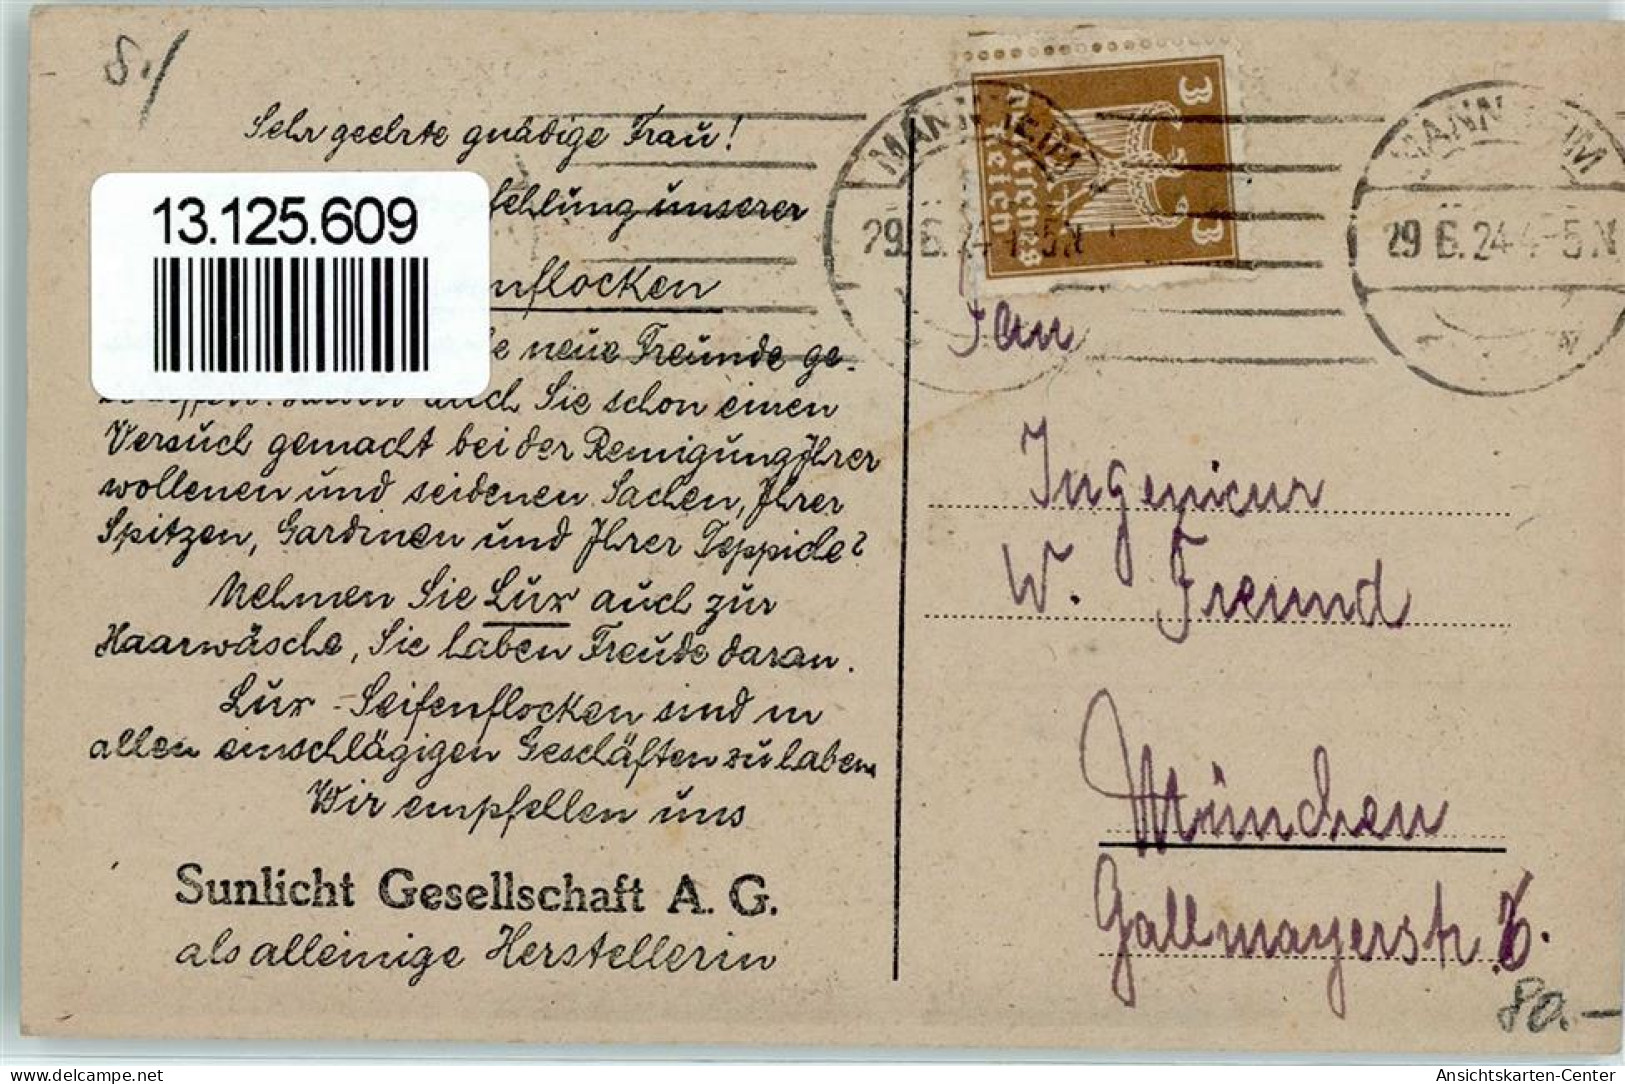 8.-/
Sehr geehrte gnädige Frau!
13.125.609
fehlung unserer
nflocken
e neue Freunde ge-
auch Sie schon einen
Versuch gemacht bei der Reinigung Ihrer
wollenen und seidenen Sachen, Ihrer
Spitzen, Gardinen und Ihrer Teppiche?
Nehmen Sie Lux auch zur
Haarwäsche, Sie haben Freude daran.
Lux - Seifenflocken sind in
allen einschlägigen Geschäften zu haben
Wir empfehlen uns
Sunlicht Gesellschaft A. G.
als alleinige Herstellerin
3 Deutsches Reich 3
MANNHEIM
29.6.24 4-5 N
MANNHEIM
29.6.24 4-5 N
Ingenieur
W. Freund
München
Gallmayerstr.
80.-
delcampe.net
Ansichtskarten-Center